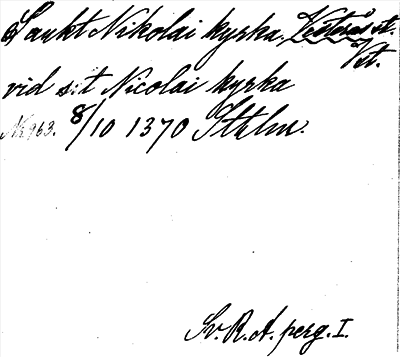 Sankt Nikolai kyrka, Västerås st.
Vst.
vid s:t Nicolai kyrka
N. 963. 8/10 1370 Sthlm.
Sv. R. A. perg. I.